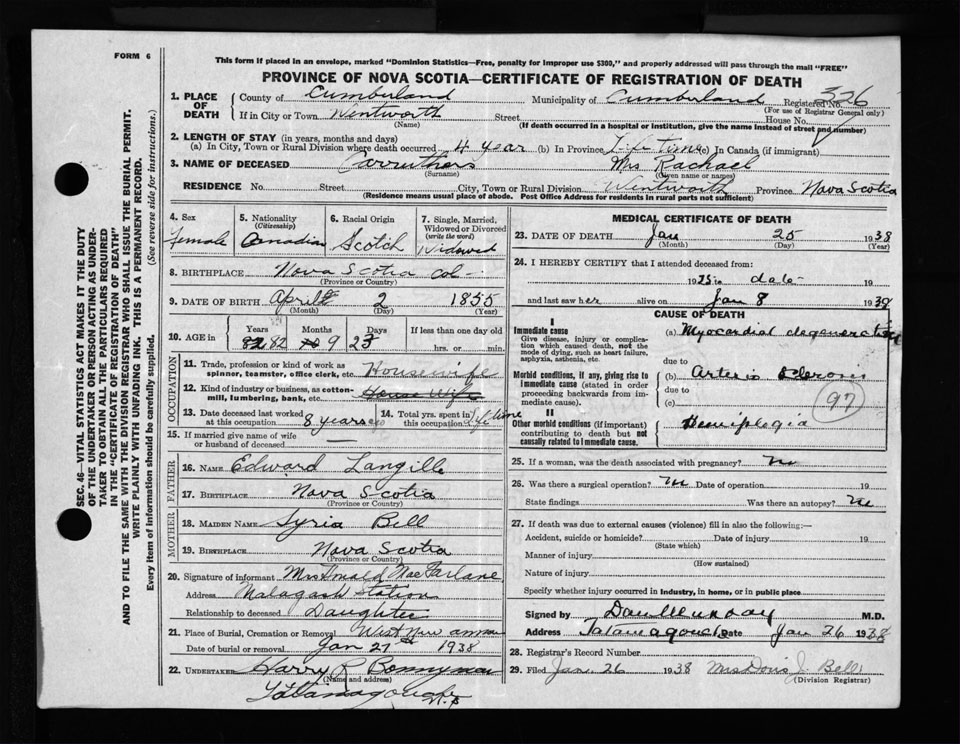 FORM 6
This form if placed in an envelope, marked "Dominion Statistics—Free, penalty for improper use $300," and properly addressed will pass through the mail "FREE"
PROVINCE OF NOVA SCOTIA—CERTIFICATE OF REGISTRATION OF DEATH
SEC. 46—VITAL STATISTICS ACT MAKES IT THE DUTY
OF THE UNDERTAKER OR PERSON ACTING AS UNDER-
TAKER TO OBTAIN ALL THE PARTICULARS REQUIRED
IN THE "CERTIFICATE OF REGISTRATION OF DEATH"
AND TO FILE THE SAME WITH THE DIVISION REGISTRAR WHO SHALL ISSUE THE BURIAL PERMIT.
WRITE PLAINLY WITH UNFADING INK. THIS IS A PERMANENT RECORD.
Every item of information should be carefully supplied. (See reverse side for instructions.)
1. PLACE OF DEATH County of Cumberland Municipality of Cumberland Registered No. 326
(For use of Registrar General only)
If in City or Town Wentworth Street House No.
(Name) (If death occurred in a hospital or institution, give the name instead of street and number)
2. LENGTH OF STAY (in years, months and days)
(a) In City, Town or Rural Division where death occurred 4 year (b) In Province Life time (c) In Canada (if immigrant)
3. NAME OF DECEASED Carruthers Mrs Rachael
(Surname) (Given name or names)
RESIDENCE No. Street City, Town or Rural Division Wentworth Province Nova Scotia
(Residence means usual place of abode. Post Office Address for residents in rural parts not sufficient)
4. Sex Female
5. Nationality (Citizenship) Canadian
6. Racial Origin Scotch
7. Single, Married, Widowed or Divorced (write the word) Widowed
8. BIRTHPLACE Nova Scotia Col
(Province or Country)
9. DATE OF BIRTH April 2 1855
(Month) (Day) (Year)
10. AGE in Years 82 82 Months 9 Days 23 If less than one day old hrs. or min.
OCCUPATION
11. Trade, profession or kind of work as spinner, teamster, office clerk, etc. Housewife
12. Kind of industry or business, as cotton-mill, lumbering, bank, etc. House Wife
13. Date deceased last worked at this occupation 8 years ago
14. Total yrs. spent in this occupation Life time
15. If married give name of wife or husband of deceased —
FATHER
16. NAME Edward Langille
17. BIRTHPLACE Nova Scotia
(Province or Country)
MOTHER
18. MAIDEN NAME Syria Bell
19. BIRTHPLACE Nova Scotia
(Province or Country)
20. Signature of informant Mrs Donald MacFarlane
Address Malagash Station
Relationship to deceased Daughter
21. Place of Burial, Cremation or Removal West New Annan
Date of burial or removal Jan 27th 1938
22. UNDERTAKER Harry R Bonnyman
(Name and address)
Tatamagouche N.S
MEDICAL CERTIFICATE OF DEATH
23. DATE OF DEATH Jan 25 1938
(Month) (Day) (Year)
24. I HEREBY CERTIFY that I attended deceased from:
1935 to date 19
and last saw her alive on Jan 8 1938
CAUSE OF DEATH
I
Immediate cause
Give disease, injury or complication which caused death, not the mode of dying, such as heart failure, asphyxia, asthenia, etc.
(a) Myocardial degeneration
due to
Morbid conditions, if any, giving rise to immediate cause (stated in order proceeding backwards from immediate cause).
(b) Arterio sclerosis
due to
(c)
97
II
Other morbid conditions (if important) contributing to death but not causally related to immediate cause.
Hemiplegia
25. If a woman, was the death associated with pregnancy? No
26. Was there a surgical operation? No Date of operation 19
State findings Was there an autopsy? No
27. If death was due to external causes (violence) fill in also the following:—
Accident, suicide or homicide? Date of injury 19
(State which)
Manner of injury
(How sustained)
Nature of injury
Specify whether injury occurred in industry, in home, or in public place
Signed by Dan Murray M.D.
Address Tatamagouche Date Jan 26 1938
28. Registrar's Record Number
29. Filed Jan. 26 1938 Mrs Doris J. Bell
(Division Registrar)